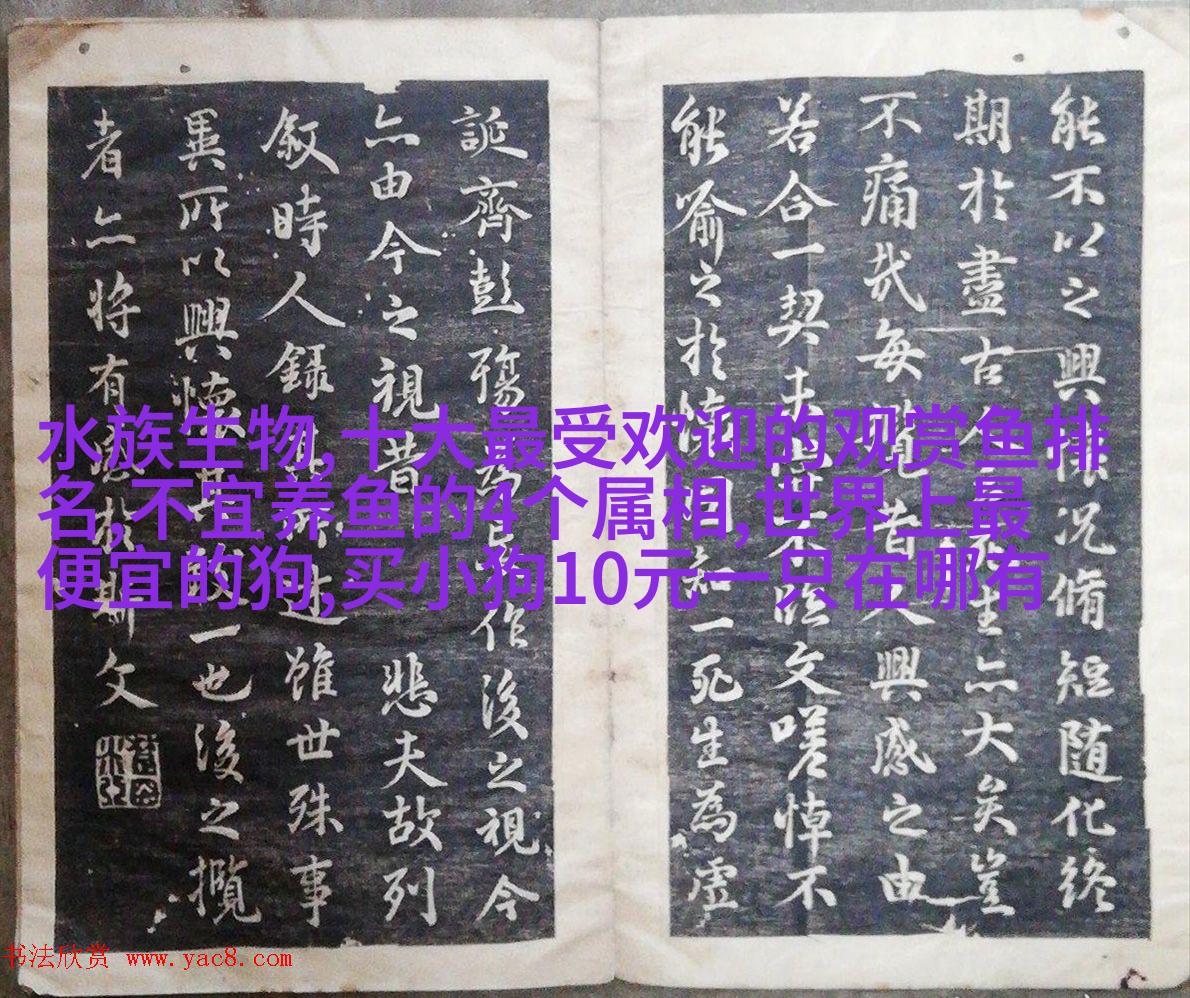 能不以之興懷況脩短随化終
期於盡古人云死生亦大矣豈
不痛哉每覽昔人興感之由
若合一契未嘗不臨文嗟悼不
能喻之於懷固知一死生為虛
誕齊彭殤為妄作後之視今
亦由今之視昔悲夫故列
敘時人錄其所述雖世殊事
異所以興懷其致一也後之攬
者亦將有感於斯文
水族生物,十大最受欢迎的观赏鱼排
名,不宜养鱼的4个属相,世界上最
便宜的狗,买小狗10元一只在哪有
书法欣赏 www.yac8.com